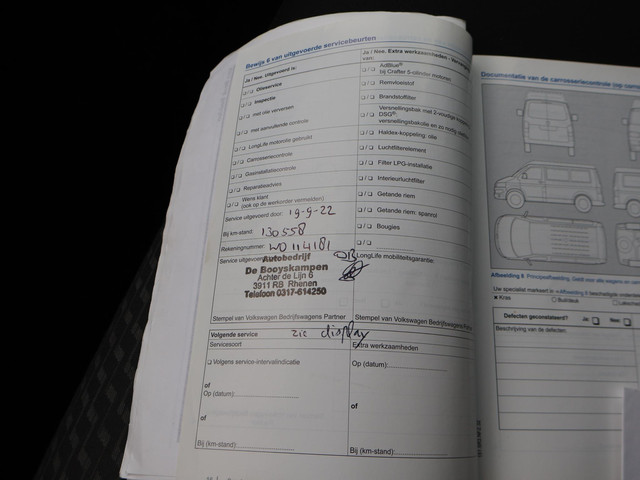 Bewijs 6 van uitgevoerde servicebeurten
Ja / Nee. Uitgevoerd is:
❏/❏ Olieservice
❏/❏ Inspectie
❏/❏ met olie verversen
❏/❏ met aanvullende controle
❏/❏ LongLife motorolie gebruikt
❏/❏ Carrosseriecontrole
❏/❏ Gasinstallatiecontrole
❏/❏ Reparatieadvies
❏/❏ Wenk klant
(ook op de werkorder vermelden)
Service uitgevoerd door: 19-9-22
Bij km-stand: 130558
Rekeningnummer: WO114181
Service uitgevoerd
Autobedrijf
De Booyskampen
Achter de Lijn 6
3911 RB Rhenen
Telefoon 0317-614250
Stempel van Volkswagen Bedrijfswagens Partner
Ja / Nee. Extra werkzaamheden
van:
❏/❏ AdBlue®
bij Crafter 5-cilinder motoren
❏/❏ Remvloeistof
❏/❏ Brandstoffilter
❏/❏ Versnellingsbak met 2-voudige
DSG®:
versnellingsbakolie en zo nodig
❏/❏ Haldex-koppeling: olie
❏/❏ Luchtfilterelement
❏/❏ Filter LPG-installatie
❏/❏ Interieurluchtfilter
❏/❏ Getande riem
❏/❏ Getande riem: spanrol
❏/❏ Bougies
❏/❏
LongLife mobiliteitsgarantie:
Stempel van Volkswagen Bedrijfswagens
Volgende service zie display
Servicesoort
❏ Volgens service-intervalindicatie
of
Op (datum):
of
Bij (km-stand):
Extra werkzaamheden
Op (datum):
of
Bij (km-stand):
Documentatie van de carrosseriecontrole
Afbeelding 5 Principeafbeelding. Geldt voor alle wagens en
Uw specialist markeert in
■ Kras
Defecten geconstateerd? Ja: ❏ Nee: ❏
Beschrijving van de defecten: